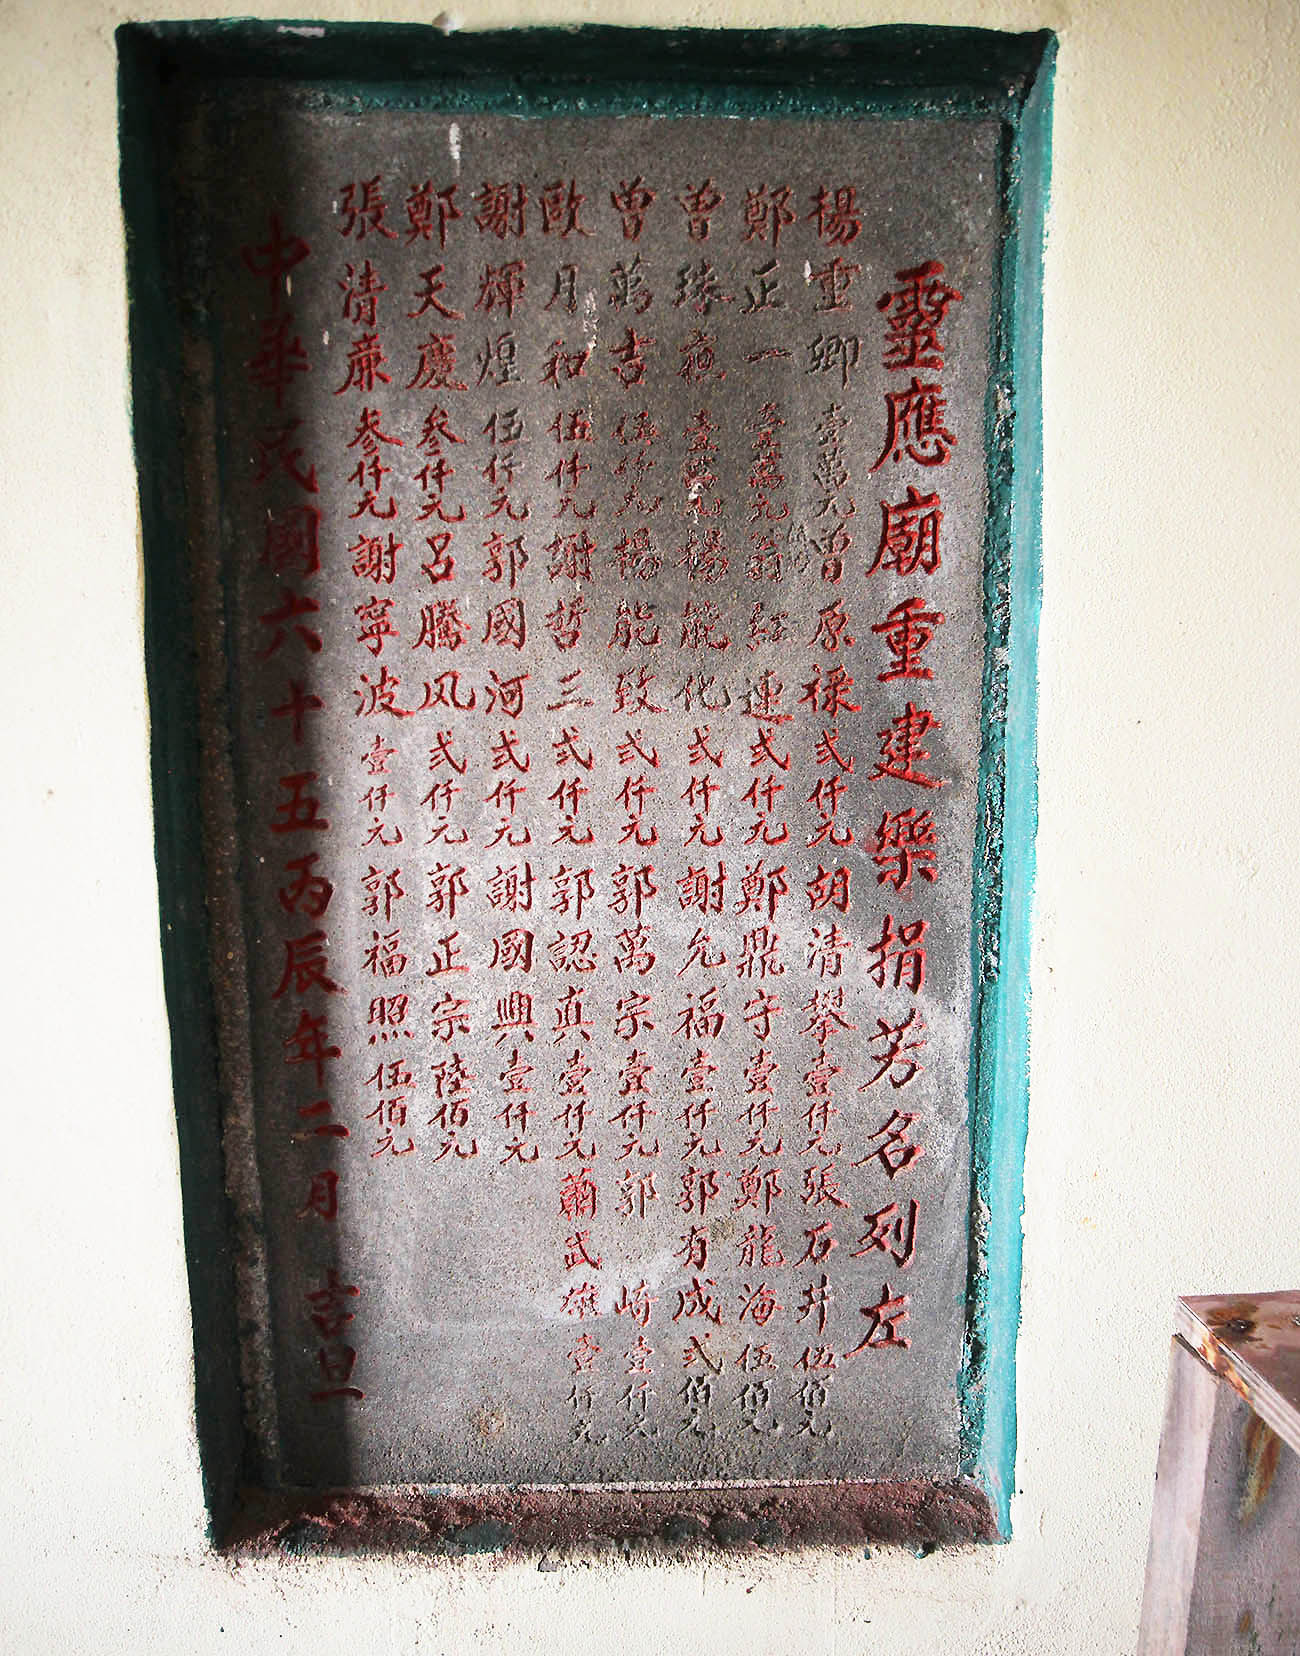 靈應廟重建樂捐芳名列左
楊重卿壹萬元曾原祿弍仟元胡清攀壹仟元張石井伍佰元
鄭正一壹萬元翁紅連弍仟元鄭鼎守壹仟元鄭龍海伍佰元
曾珠夜壹萬元楊能化弍仟元謝允福壹仟元郭有成弍佰元
曾萬吉伍仟元楊能致弍仟元郭萬宗壹仟元郭崎壹仟元
歐月和伍仟元謝哲三弍仟元郭認真壹仟元蕭武雄壹仟元
謝輝煌伍仟元郭國河弍仟元謝國興壹仟元
鄭天慶叁仟元呂騰风弍仟元郭正宗陸佰元
張清廉参仟元謝寧波壹仟元郭福照伍佰元
中華民國六十五丙辰年二月吉旦